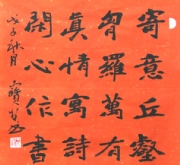 寄意丘壑
胷羅萬有
真情寓詩
閑心信書
戊子秋月